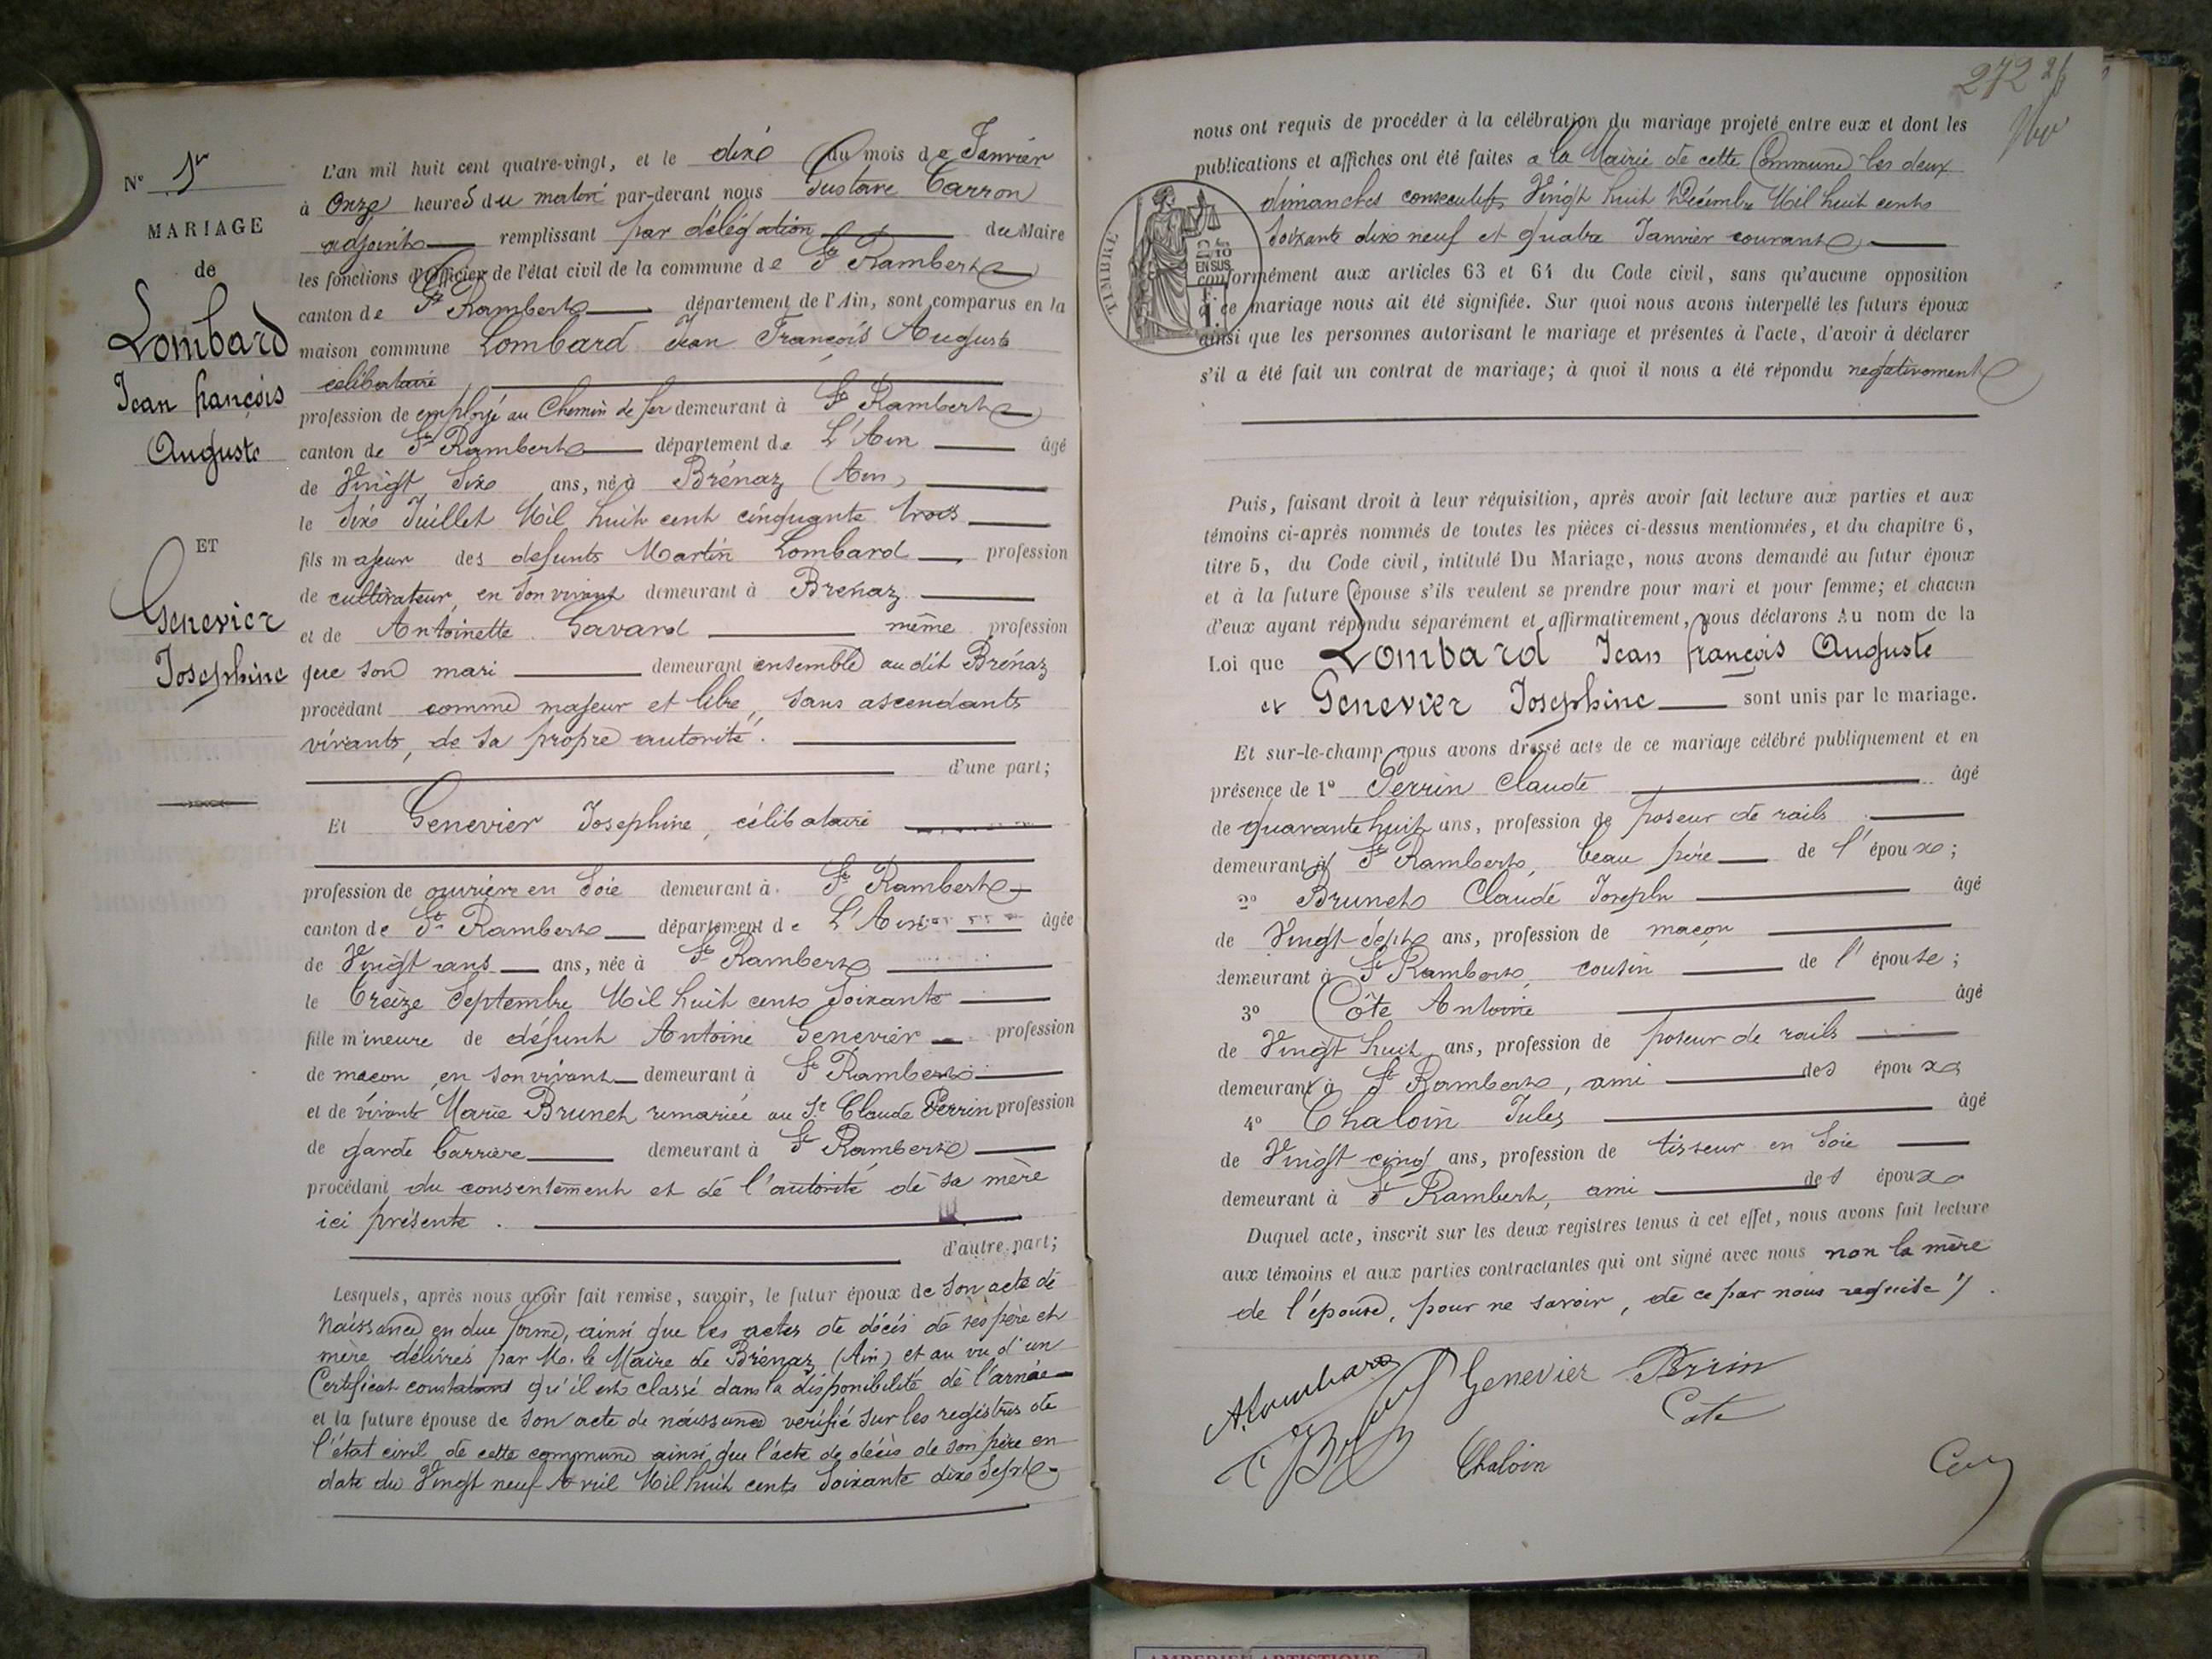 N° 1er
MARIAGE
de
Lombard
Jean françois
Auguste
ET
Genevier
Josephine
L'an mil huit cent quatre-vingt, et le dix du mois de Janvier
à Onze heures du matin par-devant nous Gustave Carron
adjoint remplissant par délégation du Maire
les fonctions d'Officier de l'état civil de la commune de St Rambert
canton de St Rambert département de l'Ain, sont comparus en la
maison commune Lombard Jean François Auguste
célibataire
profession de employé au Chemin de fer demeurant à St Rambert
canton de St Rambert département de L'Ain âgé
de Vingt Six ans, né à Brénaz (Ain)
le Six Juillet Mil huit cent cinquante trois
fils majeur des defunts Martin Lombard profession
de cultivateur, en son vivant demeurant à Brénaz
et de Antoinette Savard même profession
que son mari demeurant ensemble au dit Brénaz
procédant comme majeur et libre, sans ascendants
vivants, de sa propre autorité.
d'une part;
Et Genevier Josephine, célibataire
profession de ouvrière en Soie demeurant à St Rambert
canton de St Rambert département de L'Ain âgée
de Vingt ans ans, née à St Rambert
le Treize Septembre Mil huit cent Soixante
fille mineure de défunt Antoine Genevier profession
de maçon en son vivant demeurant à St Rambert
et de vivante Marie Brunet remariée au Sr Claude Perrin profession
de garde barrière demeurant à St Rambert
procédant du consentement et de l'autorité de sa mère
ici présente.
d'autre part;
Lesquels, après nous avoir fait remise, savoir, le futur époux de son acte de
Naissance en due forme, ainsi que les actes de décès de ses père et
mère délivrés par M. le Maire de Brénaz (Ain) et au vu d'un
Certificat constatant qu'il est classé dans la disponibilité de l'armée
et la future épouse de son acte de naissance vérifié sur les registres de
l'état civil de cette commune ainsi que l'acte de décès de son père en
date du Vingt neuf Avril Mil huit cent Soixante dix Sept
272 26
nous ont requis de procéder à la célébration du mariage projeté entre eux et dont les
publications et affiches ont été faites a la Mairie de cette Commune les deux
dimanches consecutifs Vingt huit Décembre Mil huit cent
Soixante dix neuf et quatre Janvier courant
TIMBRE
2/10
EN SUS
conformément aux articles 63 et 64 du Code civil, sans qu'aucune opposition
à ce mariage nous ait été signifiée. Sur quoi nous avons interpellé les futurs époux
ainsi que les personnes autorisant le mariage et présentes à l'acte, d'avoir à déclarer
s'il a été fait un contrat de mariage; à quoi il nous a été répondu negativement
Puis, faisant droit à leur réquisition, après avoir fait lecture aux parties et aux
témoins ci-après nommés de toutes les pièces ci-dessus mentionnées, et du chapitre 6,
titre 5, du Code civil, intitulé Du Mariage, nous avons demandé au futur époux
et à la future épouse s'ils veulent se prendre pour mari et pour femme; et chacun
d'eux ayant répondu séparément et affirmativement, nous déclarons Au nom de la
Loi que Lombard Jean françois Auguste
et Genevier Josephine sont unis par le mariage.
Et sur-le-champ nous avons dressé acte de ce mariage célébré publiquement et en
présence de 1° Perrin Claude âgé
de quarante huit ans, profession de poseur de rails
demeurant à St Rambert, beau père de l'époux;
2° Brunet Claude Joseph âgé
de Vingt Sept ans, profession de maçon
demeurant à St Rambert, cousin de l'épouse;
3° Côte Antoine âgé
de Vingt huit ans, profession de poseur de rails
demeurant à St Rambert, ami des époux
4° Chaloin Jules âgé
de Vingt cinq ans, profession de tisseur en Soie
demeurant à St Rambert, ami des époux
Duquel acte, inscrit sur les deux registres tenus à cet effet, nous avons fait lecture
aux témoins et aux parties contractantes qui ont signé avec nous non la mère
de l'épouse, pour ne savoir, de ce par nous requise
A Lombard Genevier Perrin
Cote
Chaloin
AMBERIEU ARTISTIQUE